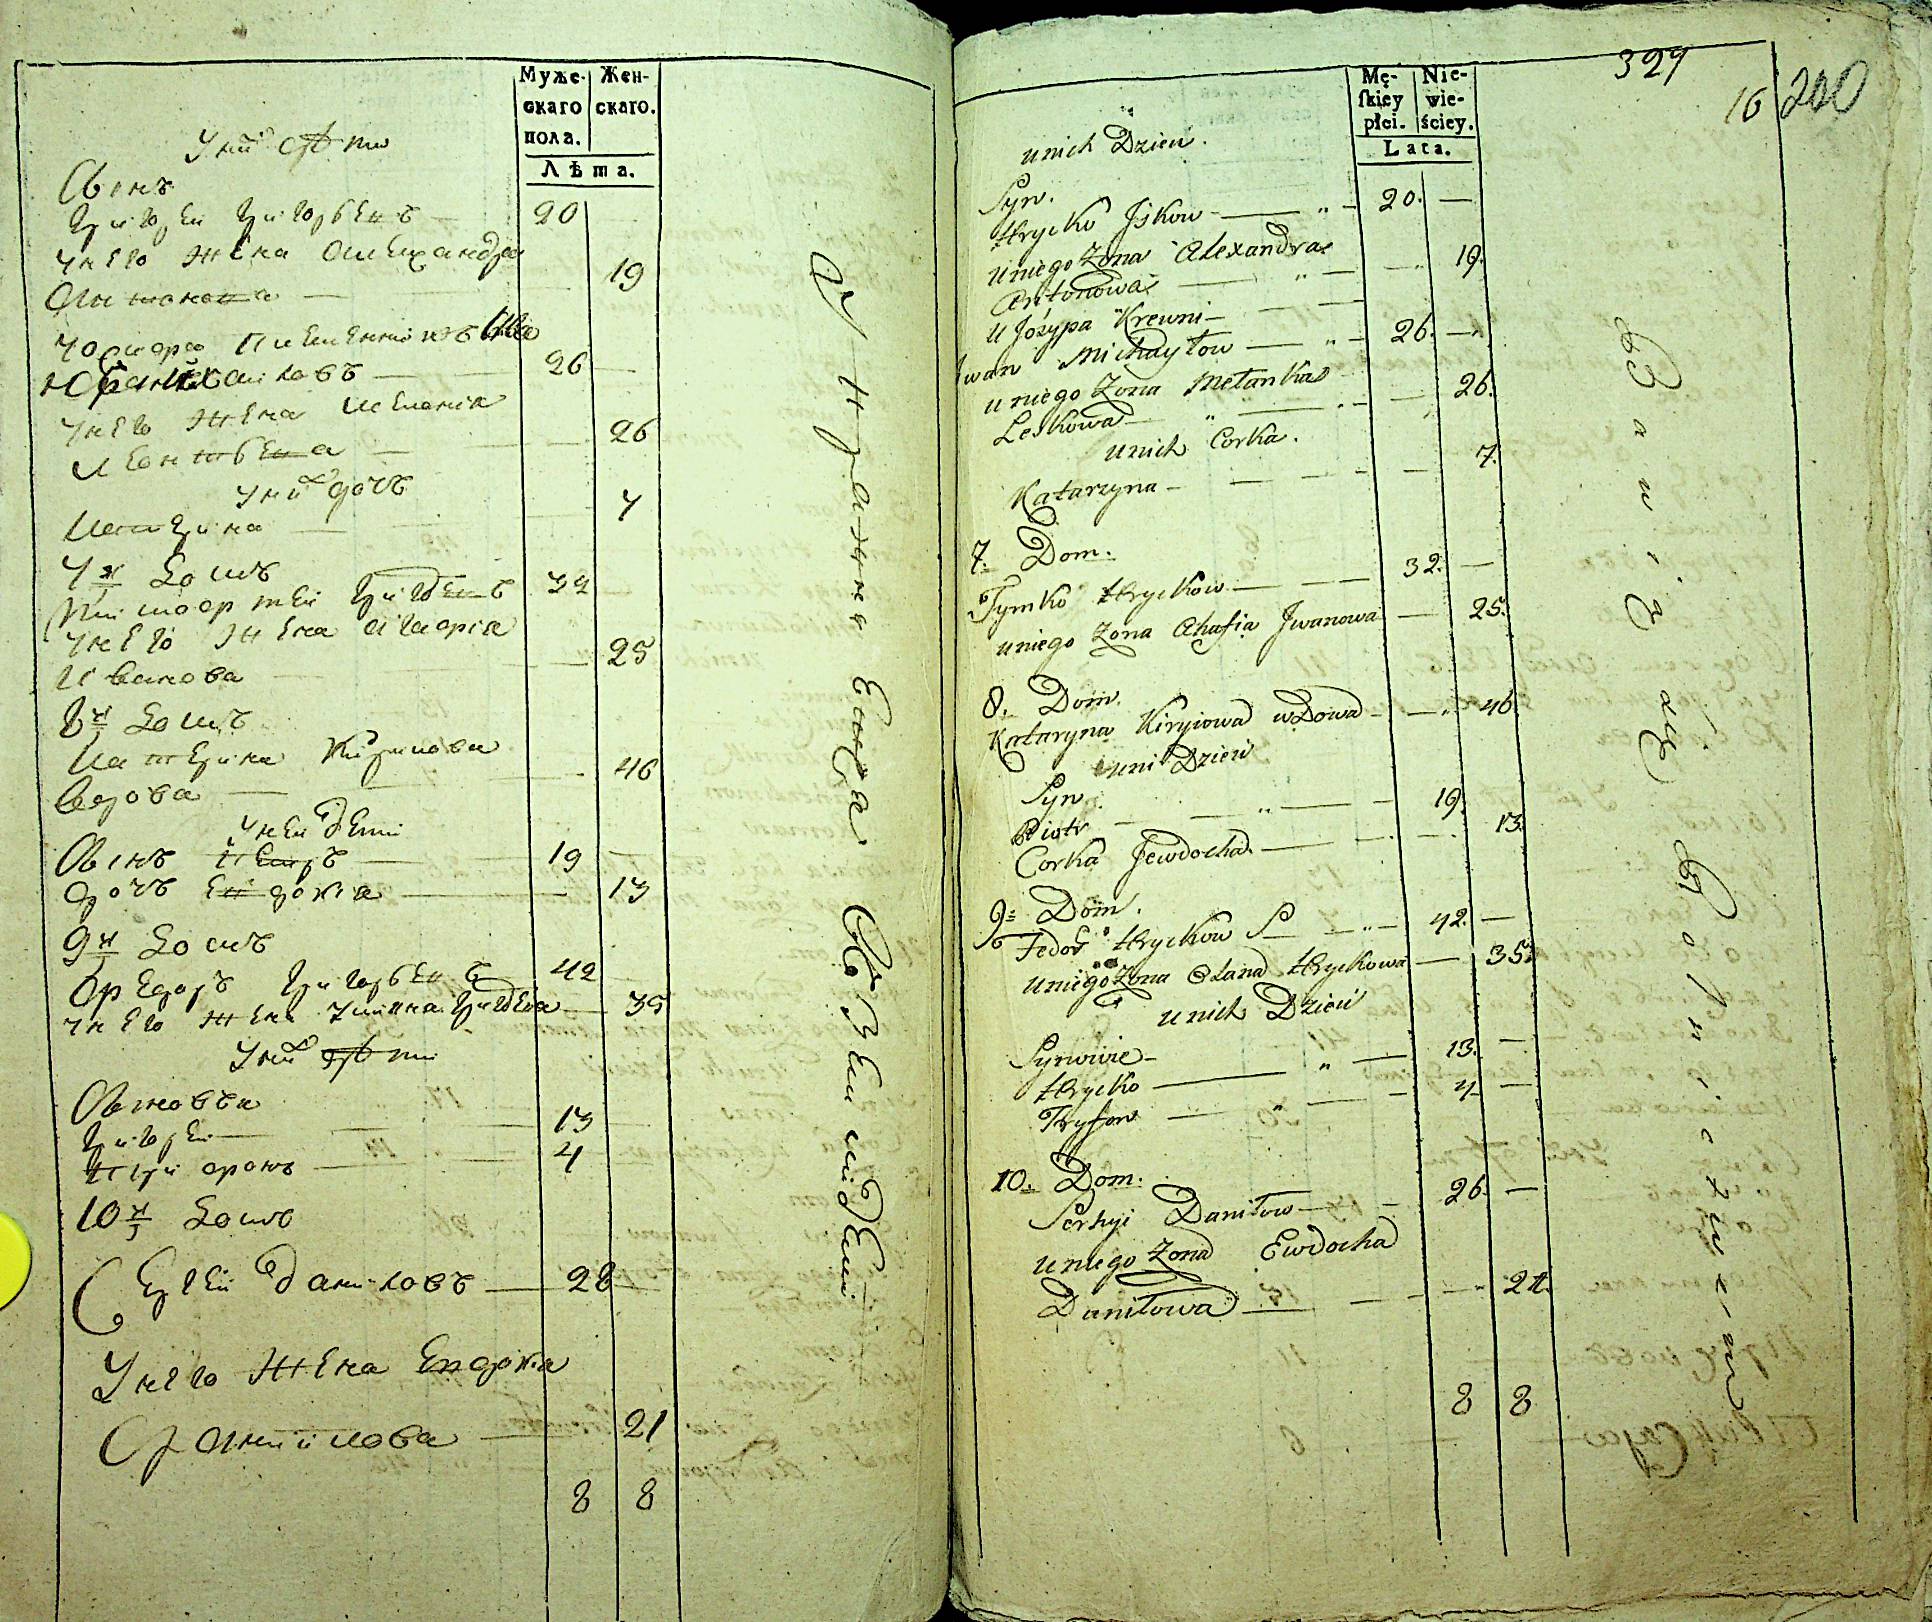 Муже-
скаго
пола.
Жен-
скаго.
Лѣта.
У них дѣти
Сынъ
Григорей Григорьевъ 20
У него жена Александра
Антонова 19
Племенник Иван
Михайловъ 26
У него жена Мелания
Леонтьева 26
У них дочь
Катерина 7
7й Домъ
Тимофей Григорьевъ 32
У него жена Агафия
Иванова 25
8й Домъ
Катерина Кирилова
вдова 46
У ней дети
Сынъ Петръ 19
дочь Евдокия 13
9й Домъ
Федоръ Григорьевъ 42
У него жена Григорьева 35
У них дѣти
Сыновья
Григорей 13
Трифонъ 4
10й Домъ
Сергей Даниловъ 28
У него жена Евдокия
Данилова 21
8 8
329
16 200
Mę-
skiey
płci.
Nie-
wie-
ściey.
Lata.
u nich Dzieci.
Syn.
Hrycko Jśkow 20.
u niego Żona Alexandra
Antonowa 19.
u Józypa Krewni
Iwan Michayłow 26.
u niego Żona Mełanka
Leskowa 26.
u nich Corka.
Katarzyna 7.
7. Dom.
Tymko Hryckow 32.
u niego Żona Ahafia Jwanowa 25.
8. Dom.
Kataryna Kiryiowa wDowa 46
u ni Dzieci
Syn
Piotr 19.
Corka Jewdocha 13.
9. Dom.
Fedor Hryckow 42.
u niego Żona Ulana Hryckowa 35.
u nich Dzieci
Synowie
Hrycko 13.
Tryfon 4
10. Dom.
Serhyi Daniłow 26.
u niego Żona Ewdocha
Daniłowa 21.
8 8